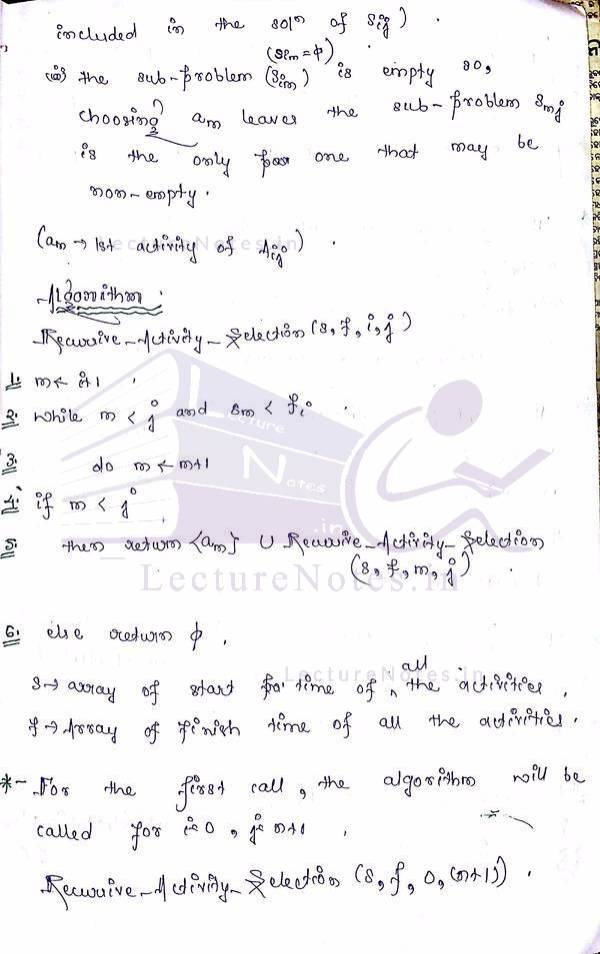 included in the solⁿ of Sij) .
(Sim=ϕ)
(ii) the sub-problem (Sim) is empty so,
choosing am leaves the sub-problem Smj
is the only one that may be
non-empty.
(am → 1st activity of Aij) .
LectureNotes.in
Algorithm :
Recursive-Activity-Selection (s, f, i, j)
1. m ← i+1
2. while m < j and sm < fi
3. do m ← m+1
4. if m < j
5. then return {am} ∪ Recursive-Activity-Selection
(s, f, m, j)
Lecture Notes .in
LectureNotes.in
6. else return ϕ .
LectureNotes.in
s → array of start time of all the activities .
f → Array of Finish time of all the activities .
*- For the first call, the algorithm will be
called for i=0, j=n+1 .
Recursive-Activity-Selection (s, f, 0, (n+1)) .